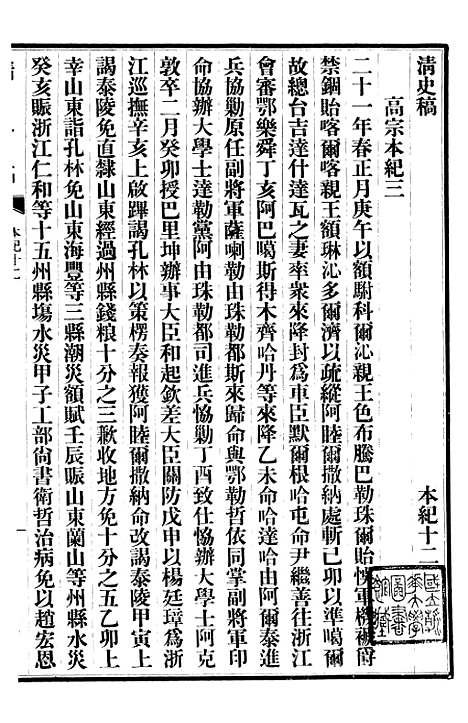 清史稿
本紀十二
高宗本紀三
二十一年春正月庚午以額駙科爾沁親王色布騰巴勒珠爾貽悞軍機褫爵
禁錮貽喀爾喀親王額琳沁多爾濟以疏縱阿睦爾撒納處斬己卯以準噶爾
故總台吉達什達瓦之妻率衆來降封爲車臣默爾根哈屯命尹繼善往浙江
會審鄂樂舜丁亥阿巴噶斯得木齊哈丹等來降乙未命哈達哈由阿爾泰進
兵協勦原任副將軍薩喇勒由珠勒都斯來歸命與鄂勒哲依同掌副將軍印
命協辦大學士達勒黨阿由珠勒都司進兵協勦丁酉致仕大學士阿克
敦卒二月癸卯授巴里坤辦事大臣和起欽差大臣關防戊申以楊廷璋爲浙
江巡撫辛亥上啟蹕謁孔林以策楞奏報獲阿睦爾撒納命改謁泰陵甲寅上
謁泰陵免直隸山東經過州縣錢糧十分之三歉收地方免十分之五乙卯上
幸山東詣孔林免山東海豐等三縣潮災額賦壬辰賑山東蘭山等州縣水災
癸亥賑浙江仁和等十五州縣場水災甲子工部尙書衞哲治病免以趙宏恩
本紀十二
一